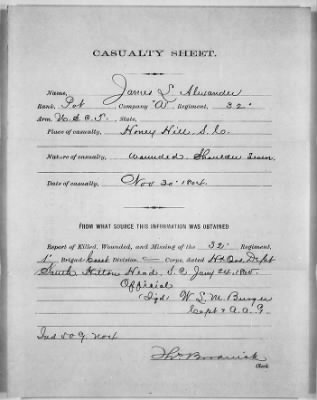 CASUALTY SHEET.
Name, James S. Alexander
Rank, Pvt Company "A" Regiment, 32"
Arm, U.S.C.T. State,
Place of casualty, Honey Hill, S.C.
Nature of casualty, wounded, Shoulder
Date of casualty, Nov 30" 1864.
FROM WHAT SOURCE THIS INFORMATION WAS OBTAINED
Report of Killed, Wounded, and Missing of the 32" Regiment,
1" Brigade Coast Division, Corps, dated Hd Qrs Dept
South, Hilton Head, S.C. Jany 24, 1865.
Official
Sgd. W. L. M. Burger
Capt & A.A.G.
Clerk.